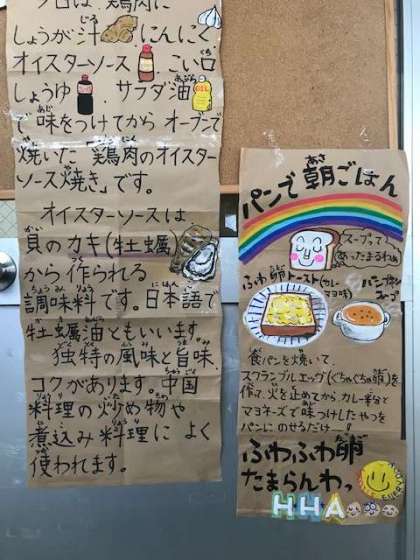 今日は、鶏肉に
しょうが汁 、にんにく
オイスターソース 、こい口
しょうゆ 、サラダ油
で味をつけてからオーブンで
焼いた「鶏肉のオイスター
ソース焼き」です。
オイスターソースは、
貝のカキ(牡蠣)
から作られる
調味料です。日本語で
牡蠣油ともいいます
独特の風味と旨味、
コクがあります。中国
料理の炒め物や
煮込み料理に よく
使われます。
パンで朝ごはん
スープって
あったまるわぁ
ふわ卵トースト(カレー
マヨ味)
パンプキン
スープ
食パンを焼いて、
スクランブルエッグ(ぐちゃぐちゃの卵)を
作って、火を止めてから、カレー粉と
マヨネーズで味つけしたやつを
パンにのせるだけー!
ふわふわ卵
たまらんわっ
HHA